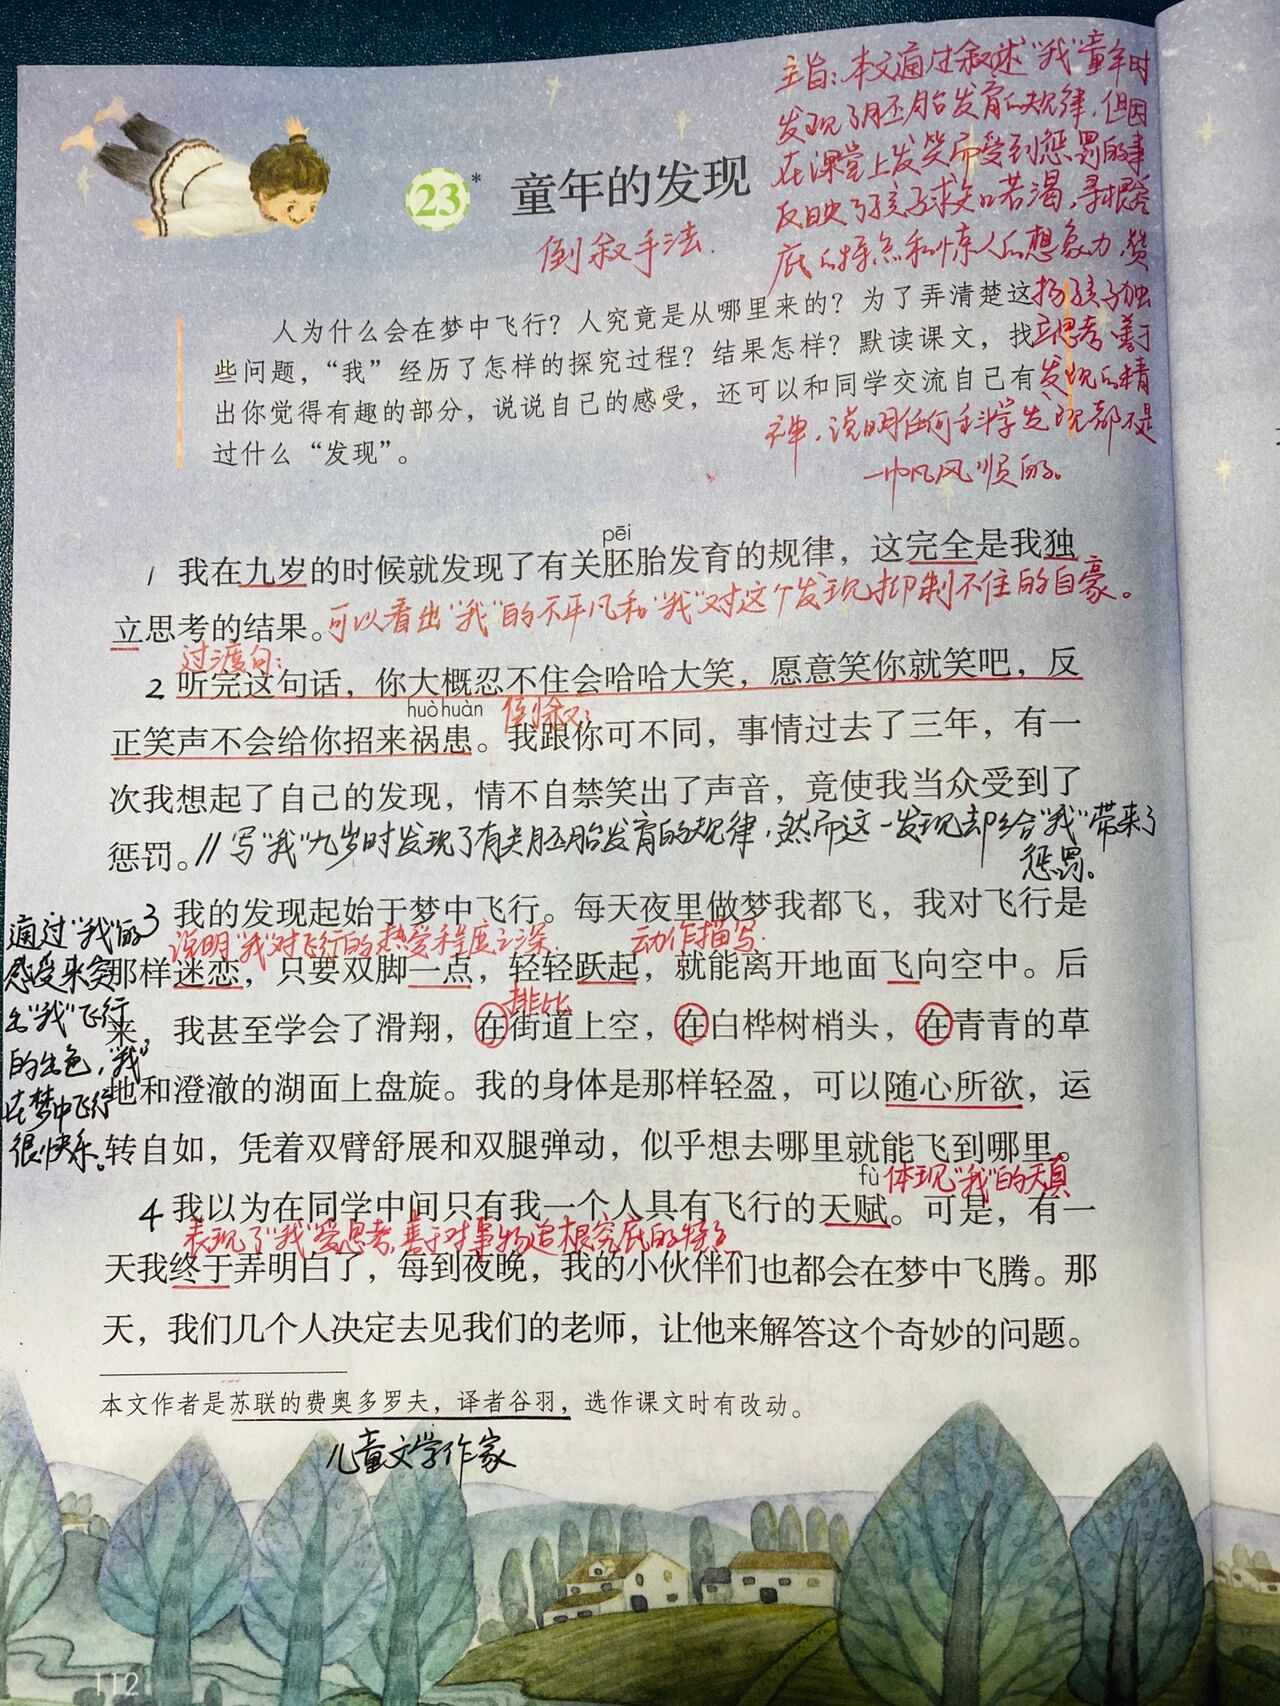 主旨：本文通过叙述“我”童年时
发现了胚胎发育的规律，但因
在课堂上发笑而受到惩罚的事
反映了孩子求知若渴，寻根答
底的特点和惊人的想象力，赞
扬孩子独
立思考、善于
发现的精
神，说明任何科学发现都不是
一帆风顺的。
23*
童年的发现
倒叙手法.
人为什么会在梦中飞行？人究竟是从哪里来的？为了弄清楚这
些问题，“我”经历了怎样的探究过程？结果怎样？默读课文，找
出你觉得有趣的部分，说说自己的感受，还可以和同学交流自己有
过什么“发现”。
pēi
1 我在九岁的时候就发现了有关胚胎发育的规律，这完全是我独
立思考的结果。可以看出“我”的不平凡和“我”对这个发现抑制不住的自豪。
过渡句：
2 听完这句话，你大概忍不住会哈哈大笑，愿意笑你就笑吧，反
huò huàn 倒叙：
正笑声不会给你招来祸患。我跟你可不同，事情过去了三年，有一
次我想起了自己的发现，情不自禁笑出了声音，竟使我当众受到了
惩罚。//写“我”九岁时发现了有关胚胎发育的规律，然而这一发现却给“我”带来了
惩罚。
3 我的发现起始于梦中飞行。每天夜里做梦我都飞，我对飞行是
说明“我”对飞行的热爱程度之深. 动作描写.
那样迷恋，只要双脚一点，轻轻跃起，就能离开地面飞向空中。后
排比
来，我甚至学会了滑翔，在街道上空，在白桦树梢头，在青青的草
地和澄澈的湖面上盘旋。我的身体是那样轻盈，可以随心所欲，运
转自如，凭着双臂舒展和双腿弹动，似乎想去哪里就能飞到哪里。
通过“我”的
感受来突
出“我”飞行
的出色，“我”
在梦中飞行
很快乐。
fù 体现“我”的天真
4 我以为在同学中间只有我一个人具有飞行的天赋。可是，有一
表现了“我”爱思考，善于对事物追根究底的特点
天我终于弄明白了，每到夜晚，我的小伙伴们也都会在梦中飞腾。那
天，我们几个人决定去见我们的老师，让他来解答这个奇妙的问题。
本文作者是苏联的费奥多罗夫，译者谷羽，选作课文时有改动。
儿童文学作家
112